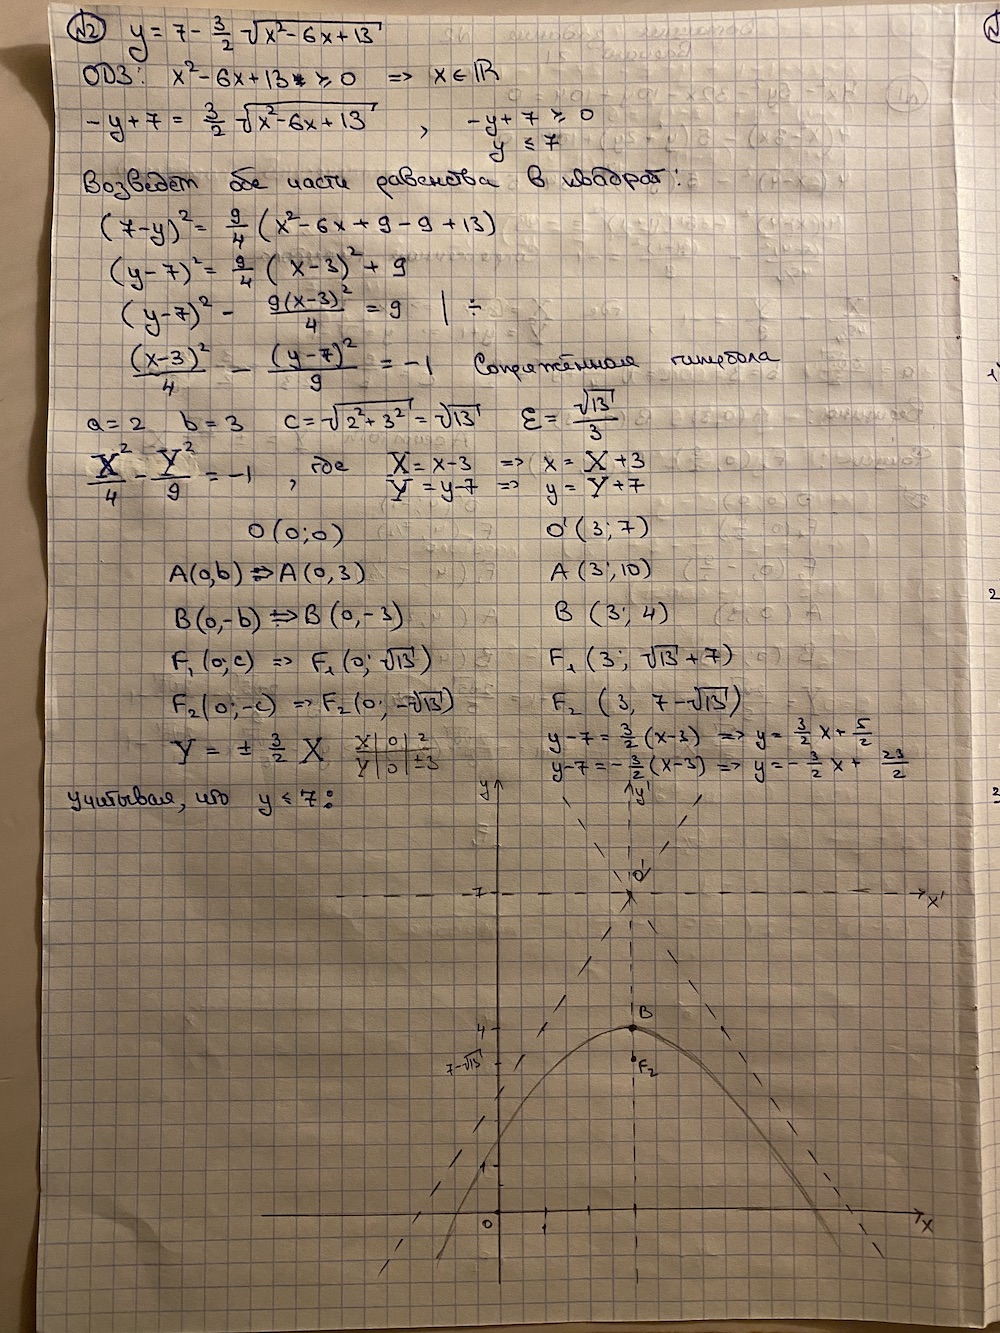 №2 y = 7 - 3/2 √(x² - 6x + 13)
ОДЗ: x² - 6x + 13 ≥ 0 => x ∈ ℝ
-y + 7 = 3/2 √(x² - 6x + 13) , -y + 7 ≥ 0
y ≤ 7
Возведём обе части равенства в квадрат:
(7-y)² = 9/4 (x² - 6x + 9 - 9 + 13)
(y-7)² = 9/4 (x-3)² + 9
(y-7)² - 9(x-3)²/4 = 9 | ÷
(x-3)²/4 - (y-7)²/9 = -1 Сопряжённая гипербола
a = 2 b = 3 c = √(2² + 3²) = √13 Ɛ = √13/3
X²/4 - Y²/9 = -1 , где X = x-3 => x = X + 3
Y = y-7 => y = Y + 7
O (0; 0) O' (3; 7)
A(0,b) => A (0, 3) A (3; 10)
B(0,-b) => B (0, -3) B (3; 4)
F₁ (0; c) => F₁ (0; √13) F₁ (3; √13 + 7)
F₂ (0; -c) => F₂ (0; -√13) F₂ (3, 7-√13)
Y = ± 3/2 X X | 0 | 2 y-7 = 3/2 (x-3) => y = 3/2 x + 5/2
Y | 0 | ±3 y-7 = -3/2 (x-3) => y = -3/2 x + 23/2
Учитывая, что y ≤ 7:
y y'
O'
7 x'
B
4
7-√13 F₂
1
0 1 x